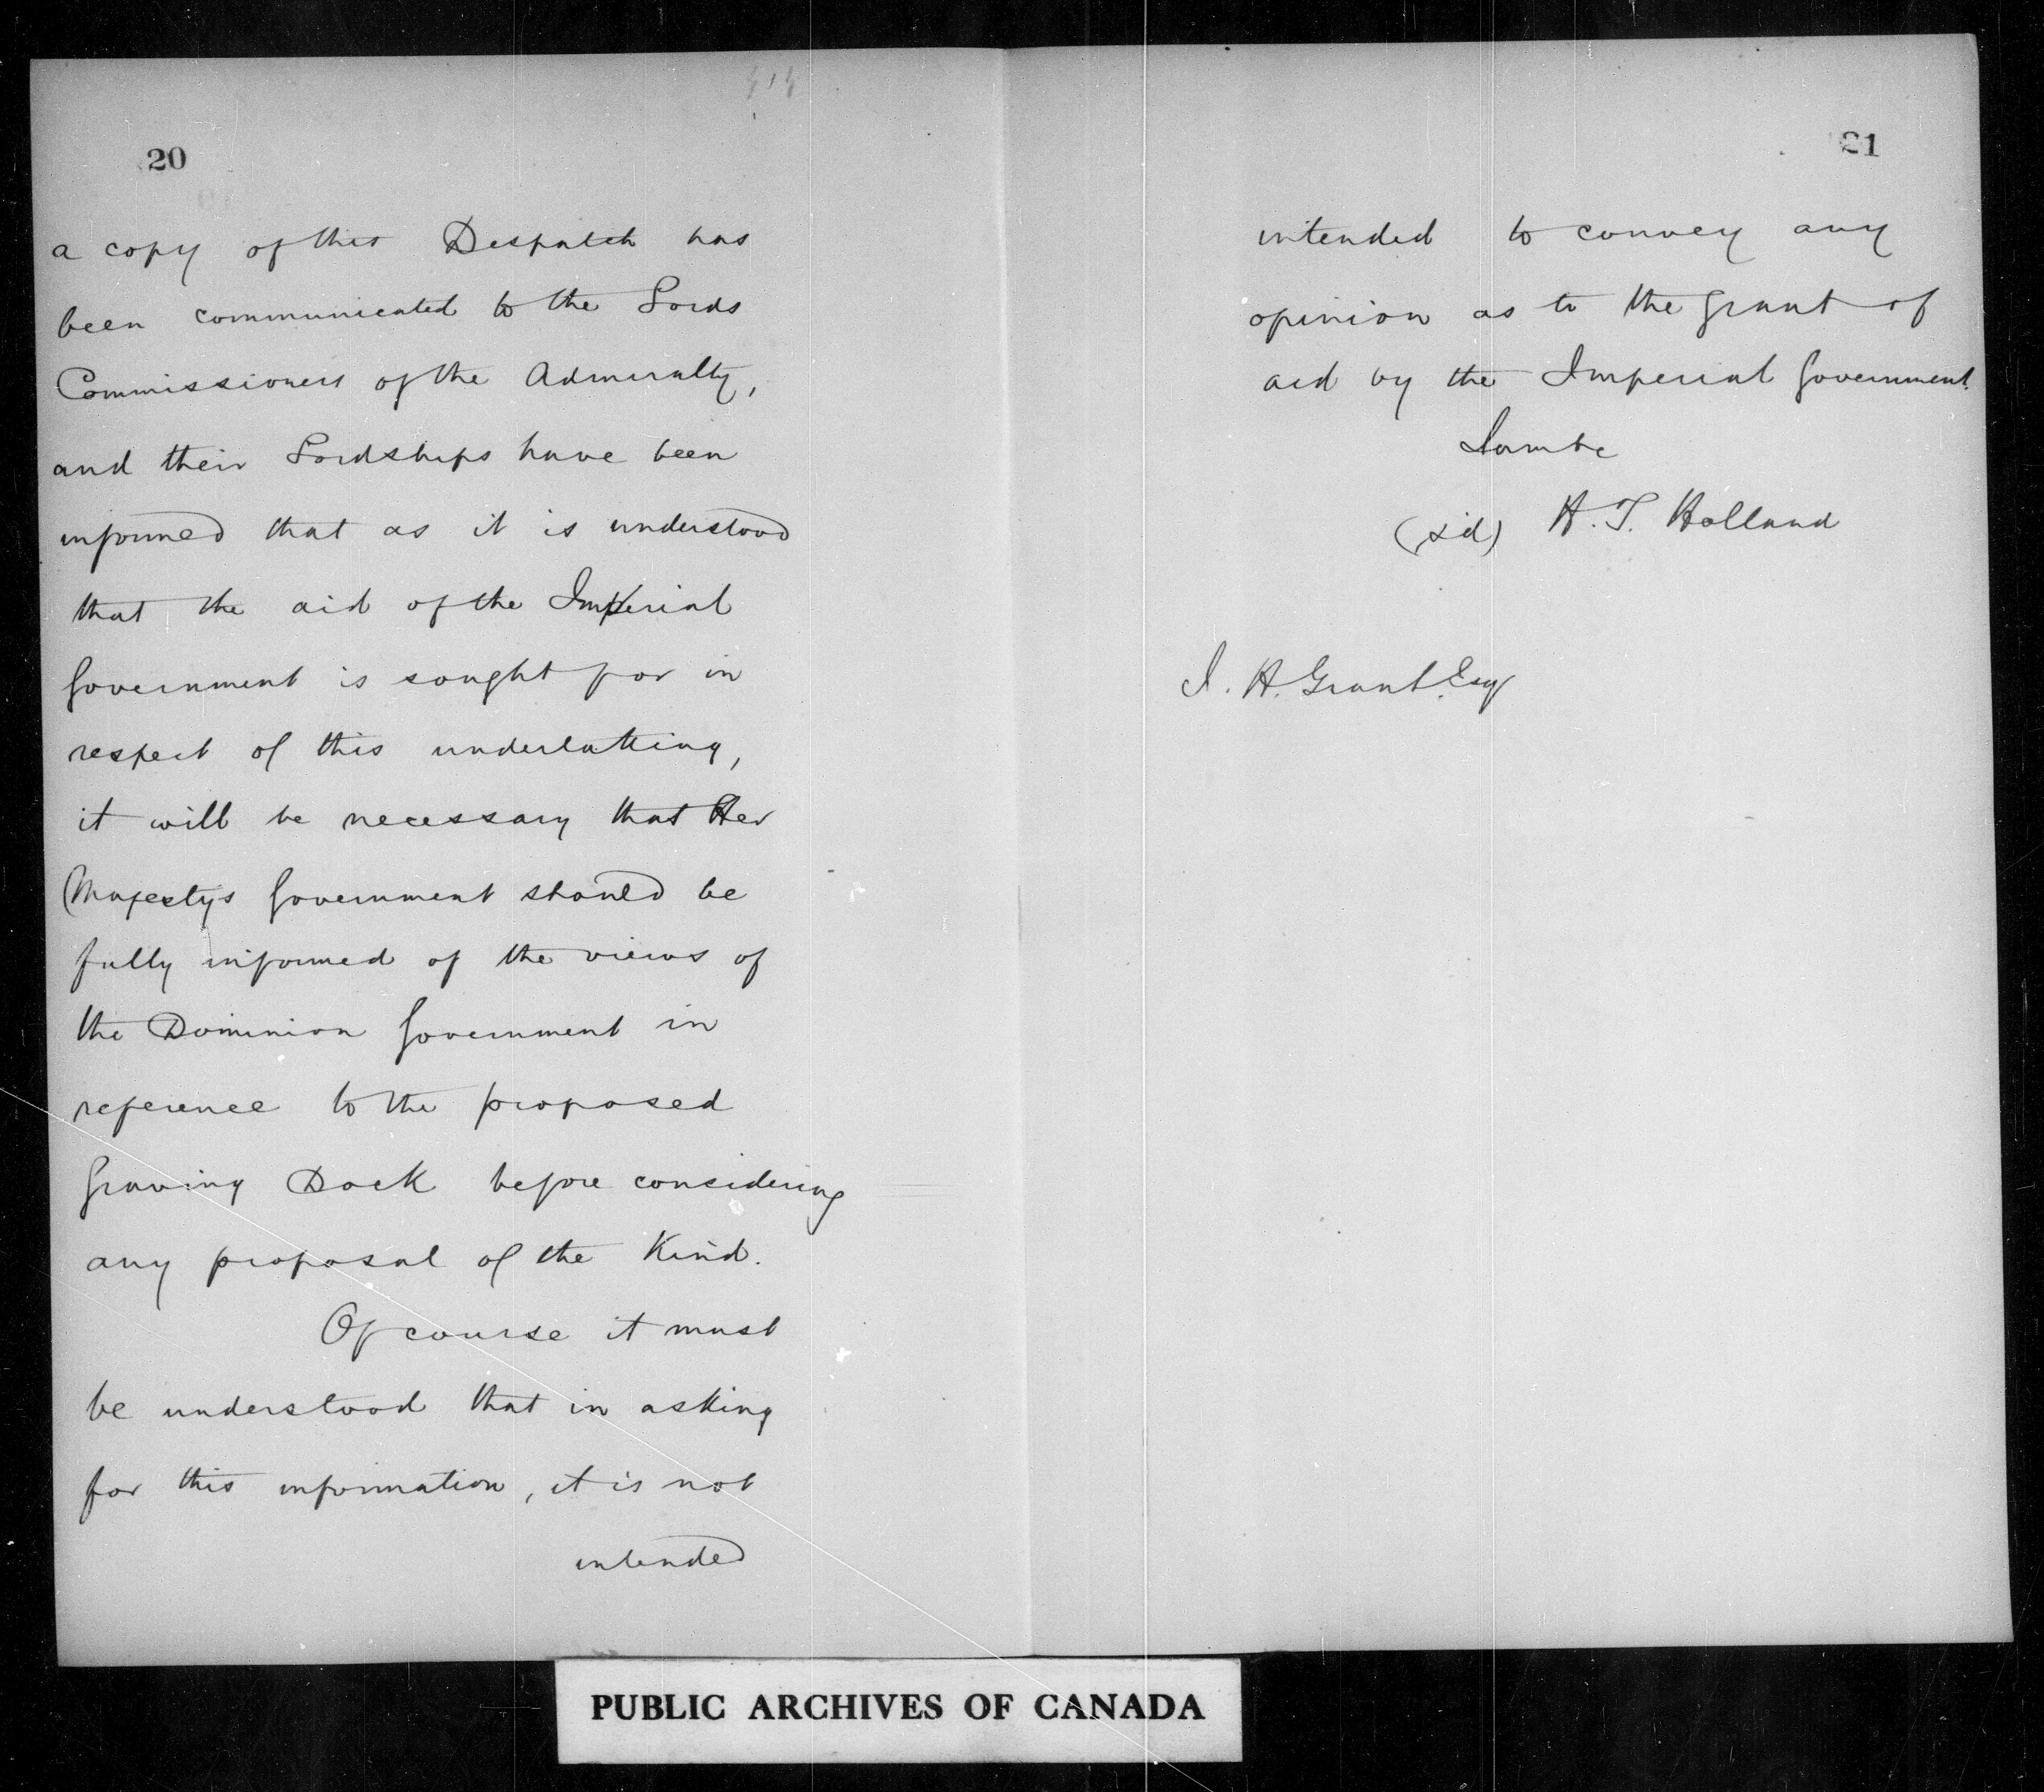 20
a copy of this Despatch has
been communicated to the Lords
Commissioners of the Admiralty,
and their Lordships have been
informed that as it is understood
that the aid of the Imperial
Government is sought for in
respect of this undertaking,
it will be necessary that Her
Majestys Government should be
fully informed of the views of
the Dominion Government in
reference to the proposed
Graving Dock before considering
any proposal of the Kind.
Of course it must
be understood that in asking
for this information, it is not
intended
21
intended to convey any
opinion as to the grant of
aid by the Imperial Government.
I am &c
(sd) H. T. Holland
I. H. Grant Esq
PUBLIC ARCHIVES OF CANADA